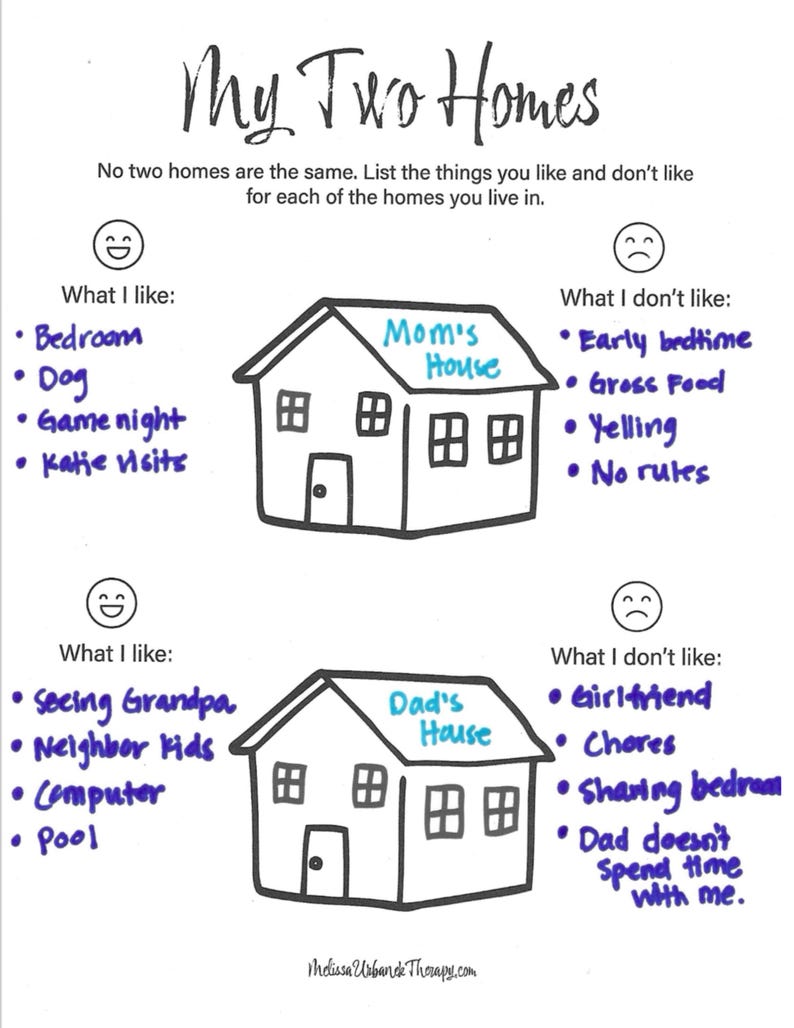 My Two Homes
No two homes are the same. List the things you like and don't like
for each of the homes you live in.
What I like:
• Bedroom
• Dog
• Game night
• Katie visits
Mom's
House
What I don't like:
• Early bedtime
• Gross Food
• Yelling
• No rules
What I like:
• Seeing Grandpa
• Neighbor Kids
• Computer
• Pool
Dad's
House
What I don't like:
• Girlfriend
• Chores
• Sharing bedroom
• Dad doesn't
spend time
with me.
MelissaUrbanekTherapy.com